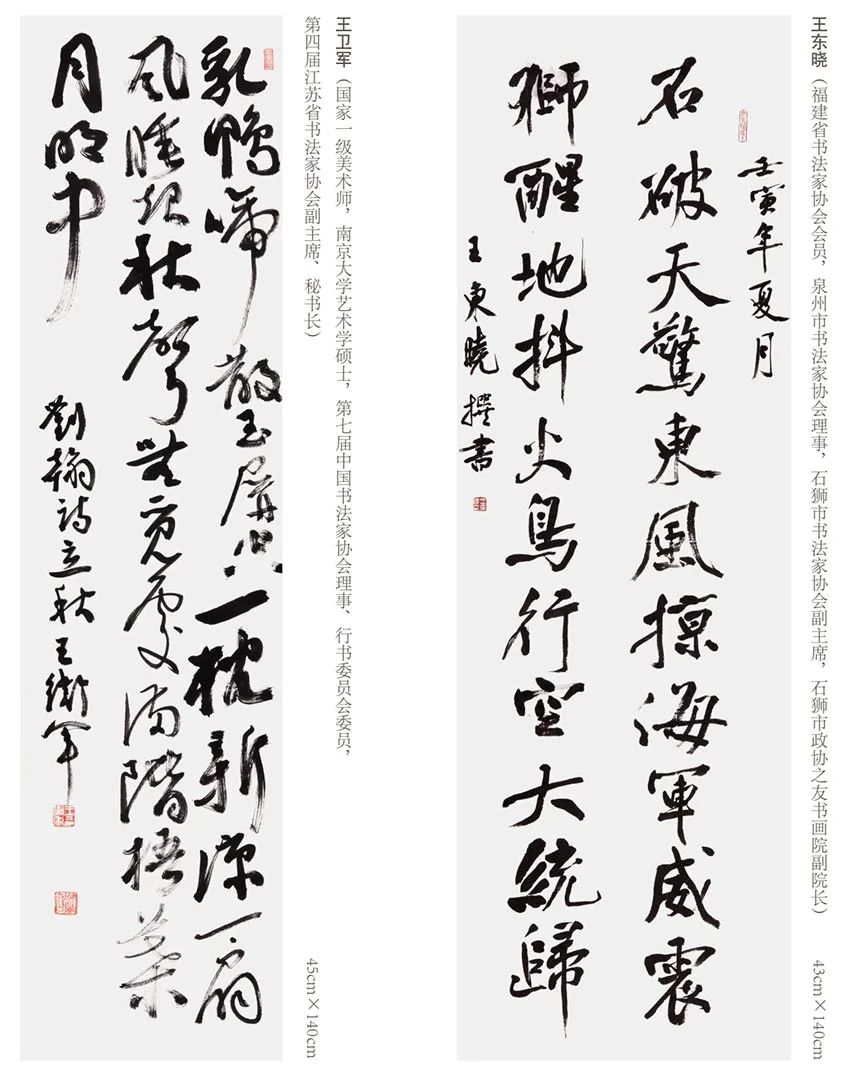 王东晓(福建省书法家协会会员,泉州市书法家协会理事,石狮市书法家协会副主席,石狮市政协之友书画院副院长)
43cm×140cm
壬寅年夏月
石破天驚東風掠海軍威震
獅醒地抖火鳥行空大統歸
王東曉撰書
王卫军(国家一级美术师,南京大学艺术学硕士,第七届中国书法家协会理事、行书委员会委员,
第四届江苏省书法家协会副主席、秘书长)
45cm×140cm
乳鴉啼散玉屏空一枕新涼一扇
風睡起秋聲無覓處滿階梧葉
月明中
劉翰詩立秋王衛軍